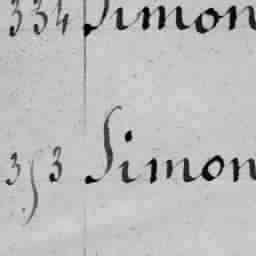 334 Simon
353 Simon